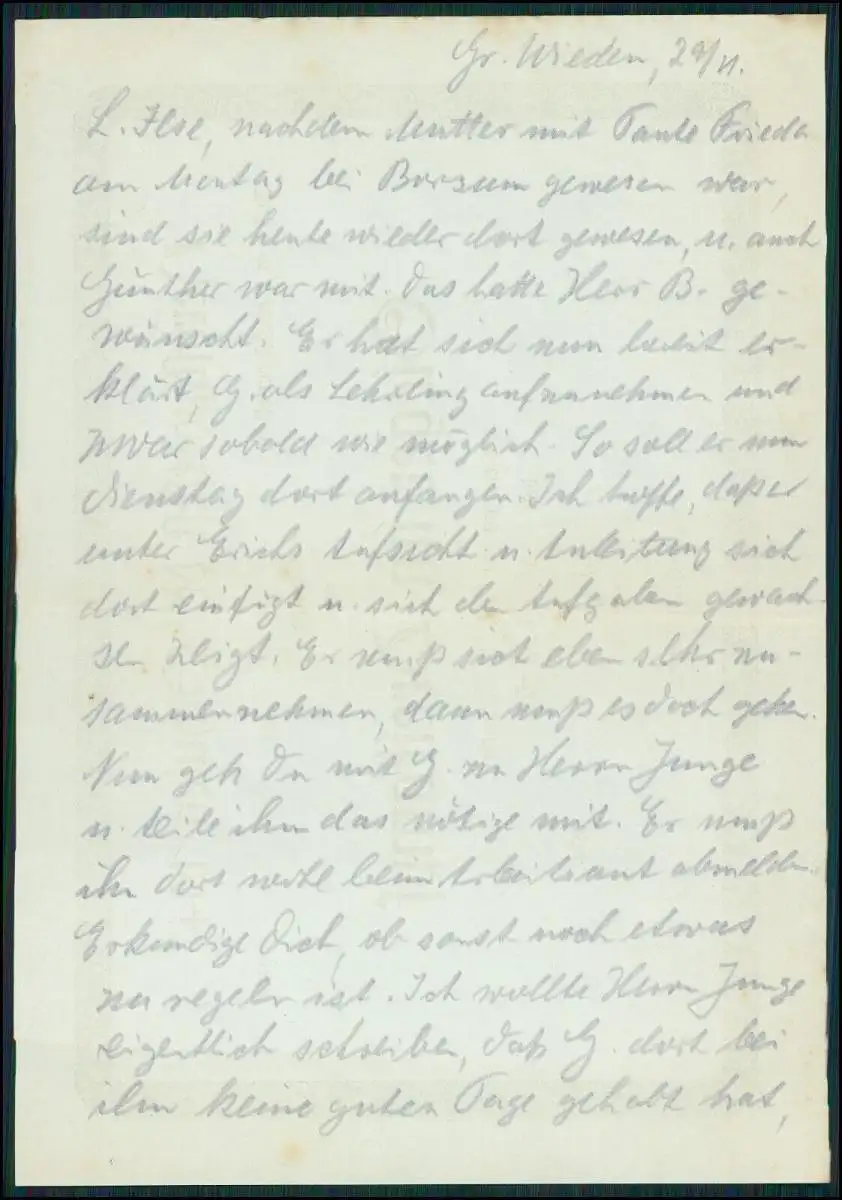 Gr. Wieden, 29/11.
L. Ilse, nachdem Mutter mit Tante Frieda
am Montag bei Borsum gewesen war,
sind sie heute wieder dort gewesen, u. auch
Günther war mit. Das hatte Herr B. ge-
wünscht. Er hat sich nun bereit er-
klärt, G. als Lehrling aufzunehmen und
zwar sobald wie möglich. So soll er nun
Dienstag dort anfangen. Ich hoffe, daß er
unter Erichs Aufsicht u. Anleitung sich
dort einfügt u. sich den Aufgaben gewach-
sen zeigt. Er muß sich eben sehr zu-
sammennehmen, dann muß es doch gehen.
Nun geh Du mit G. zu Herrn Junge
u. teile ihm das nötige mit. Er muß
ihn dort wohl beim Arbeitsamt abmelden.
Erkundige Dich, ob sonst noch etwas
zu regeln ist. Ich wollte Herrn Junge
eigentlich schreiben, daß G. dort bei
ihm keine guten Tage gehabt hat,